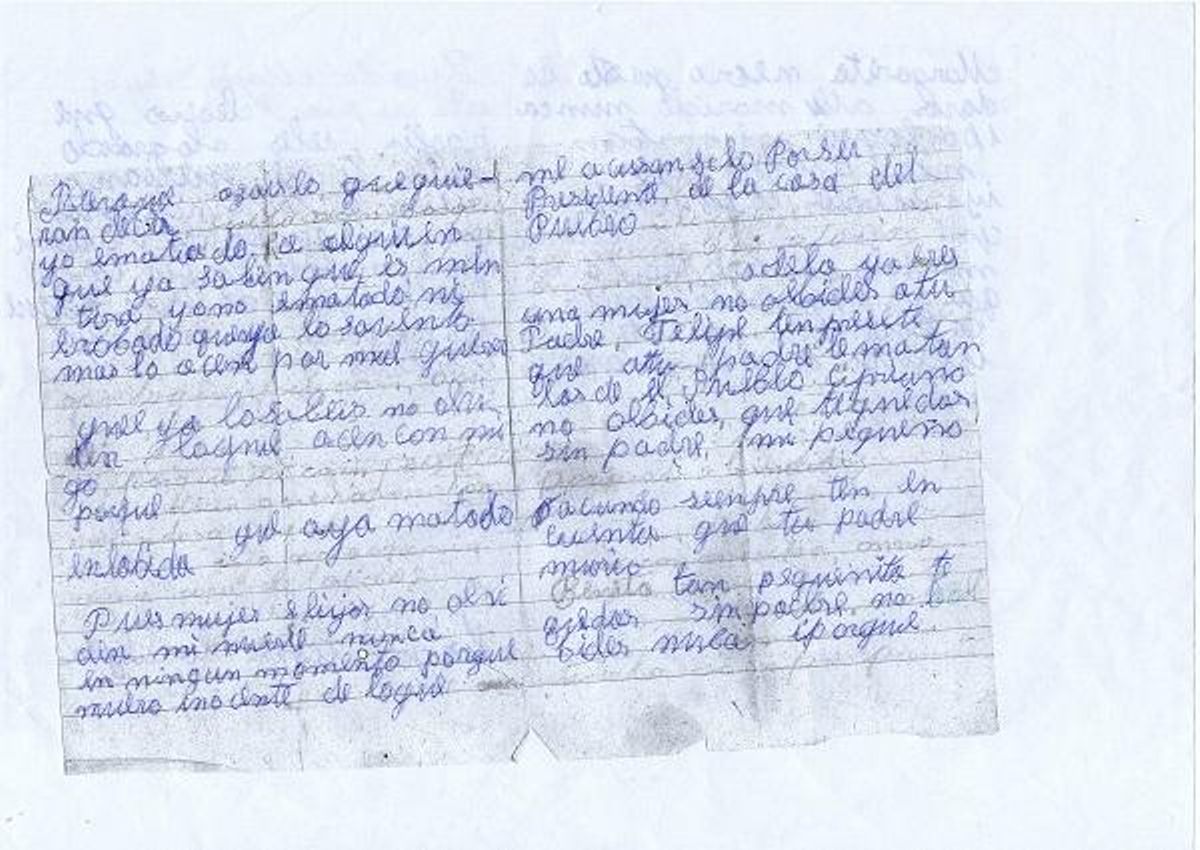 que quie-
ran decir
yo ematado, a alguien
que ya saben que es min
tira yo no ematado ni
erobado que ya lo
mas lo acen por
que ya lo sabeis no olvi
den loque acen con mi
go
porque
que aya matado
enlabida
Pues mujer e hijos no olvi
dein mi muerte nunca
en ningun momento porque
muero inocente de loque
me acusan solo Porser
Presidente, de la casa del
Pueblo
adela ya eres
una mujer no olbides atu
Padre, Felipe ten presente
que atu padre lematan
los de el Pueblo Cipriano
no olbides, que tequedas
sin padre, mi pequeño
Facundo siempre ten en
cuenta que tu padre
murio
Benita tan pequeñita te
quedas sin padre, no ol
bides nunca iporque